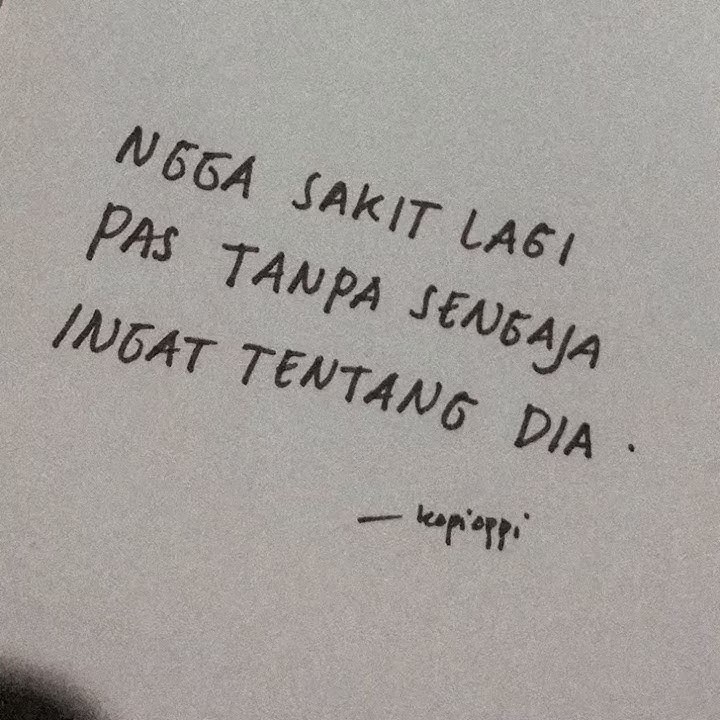 NGGA SAKIT LAGI
PAS TANPA SENGAJA
INGAT TENTANG DIA.
— kopioppi